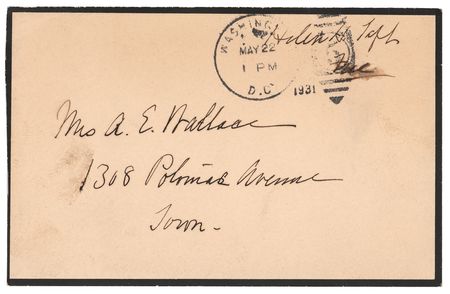 Helen H. Taft
Free
WASHINGTON
MAY 22
1 PM
D.C.
1931
Mrs A. E. Wallace
1308 Potomac Avenue
Town.